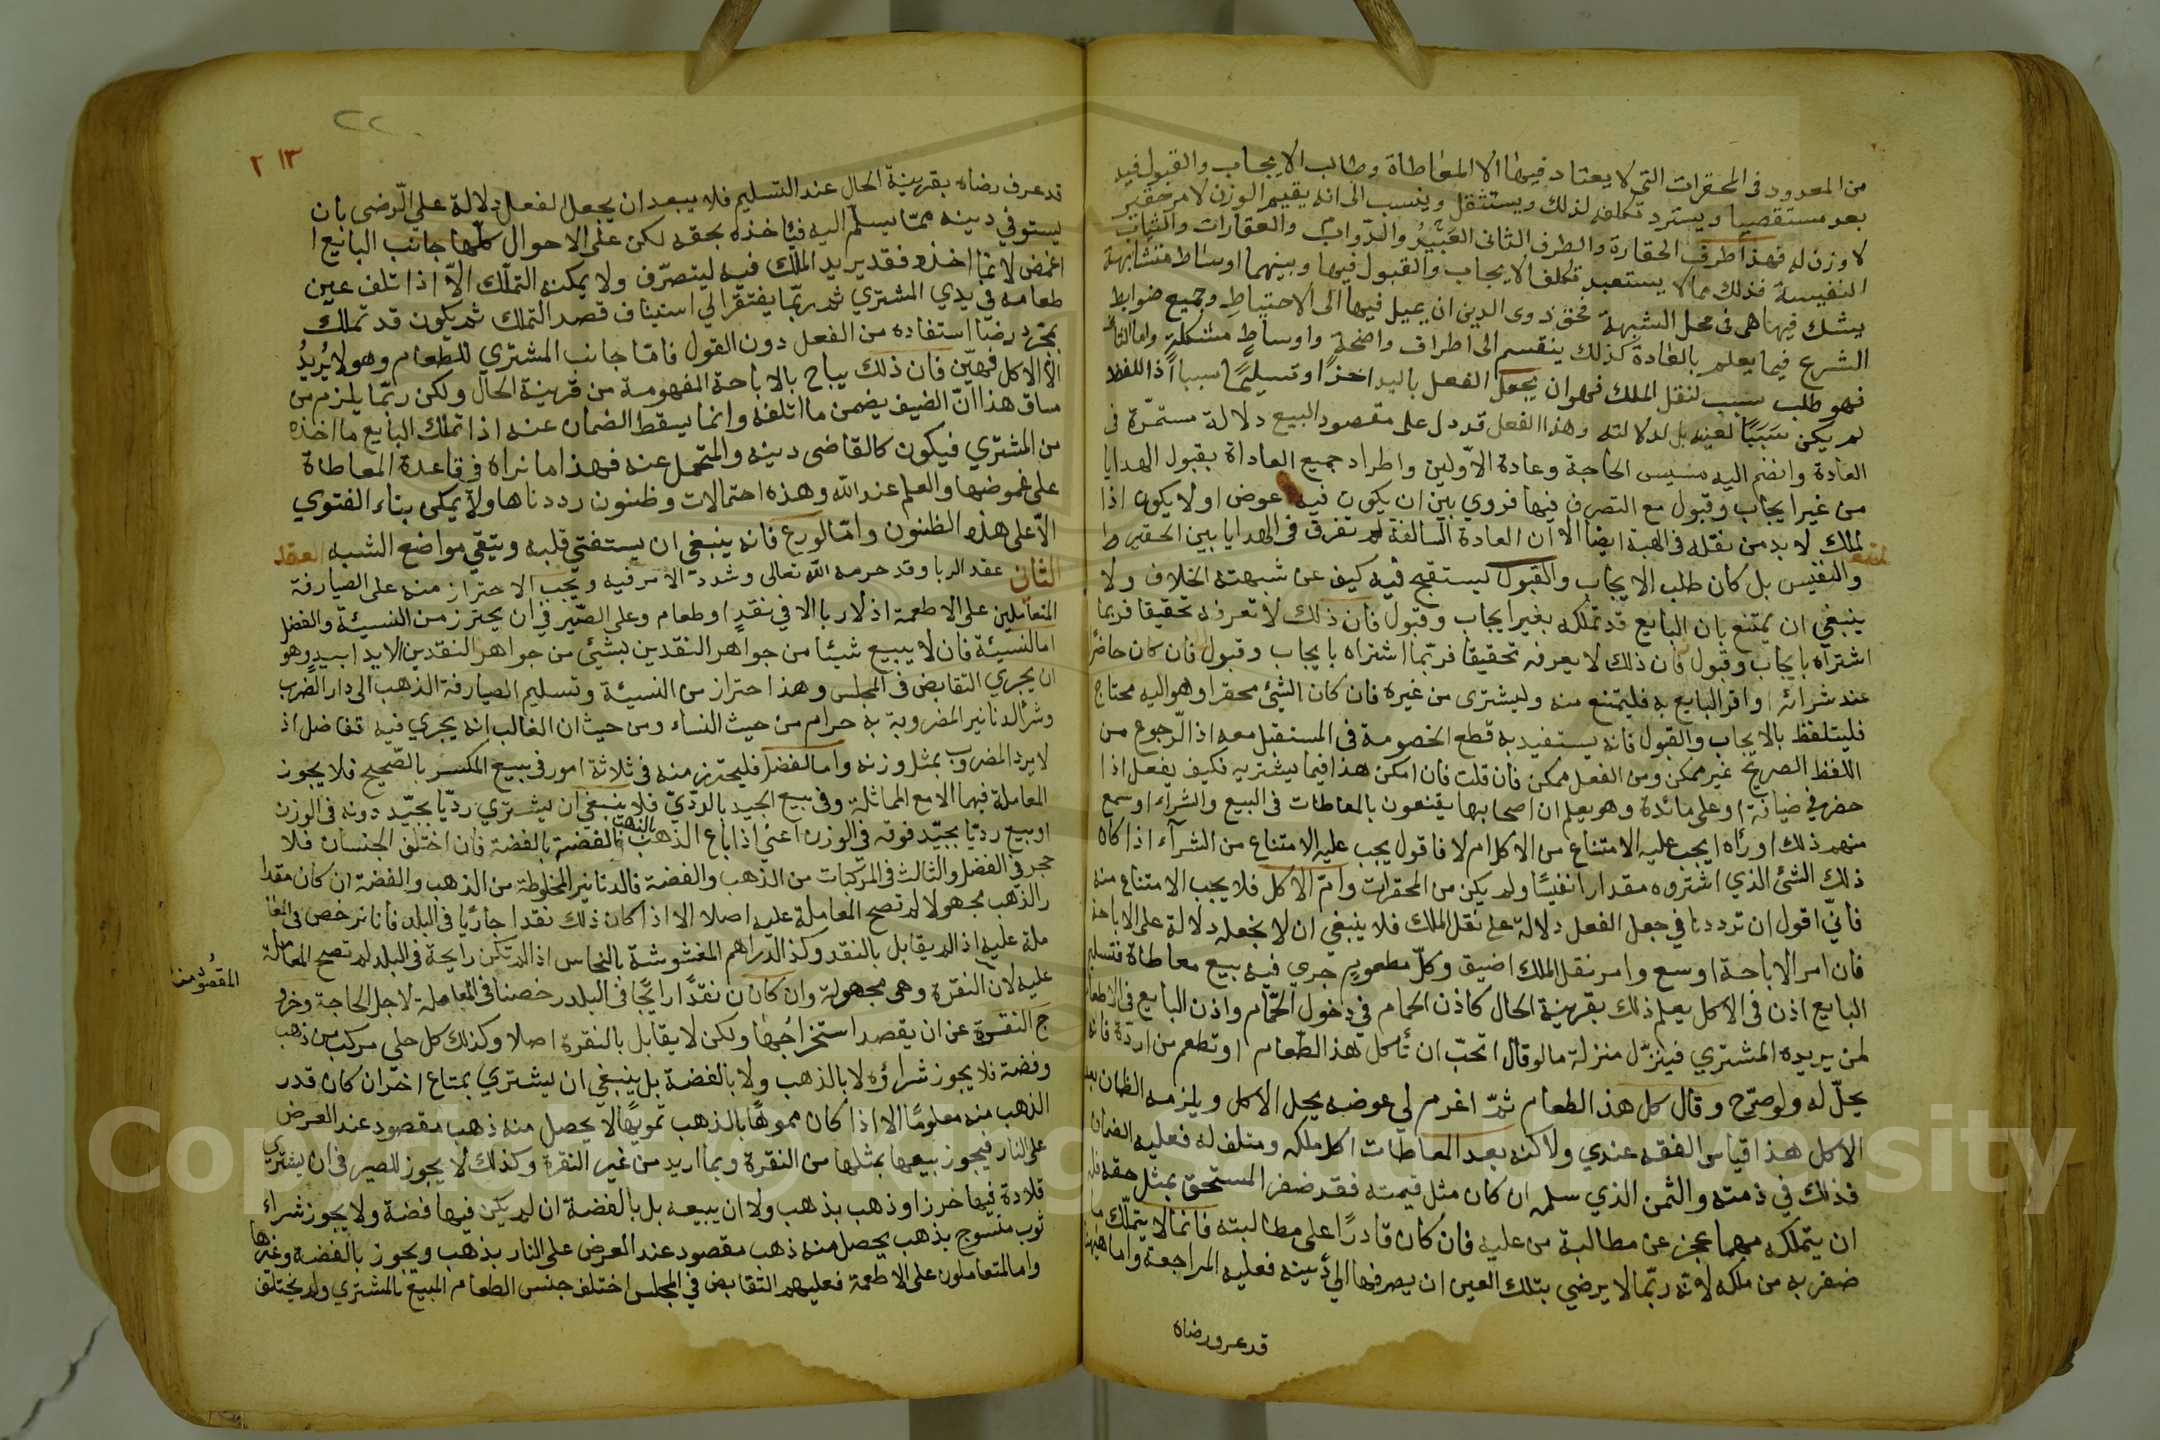 من المعدود فى المحقرات التى لا يعتاد فيها الا المعاطاة وطالب الايجاب والقبول فيه
يعد مستقصيا ويستبرد تكلفه لذلك ويستثقل وينسب الى انه يقيم الوزن لامر حقير
لا وزن له فهذا طرف الحقارة والطرف الثانى العبيد والدواب والعقارات والثياب
النفيسة فذلك مما لا يستبعد تكلف الايجاب والقبول فيها وبينهما اوساط متشابهة
يشك فيها هى فى محل الشبهة فحق ذوى الدين ان يميل فيها الى الاحتياط وجميع ضوابط
الشرع فيما يعلم بالعادة كذلك ينقسم الى اطراف واضحة واوساط مشكلة واما الثانى
فهو طلب سبب لنقل الملك فهو ان يجعل الفعل باليد اخذا وتسليما سببا اذ اللفظ
لم يكن سببا لعينه بل لدلالته وهذا الفعل قد دل على مقصود البيع دلالة مستمرة فى
العادة وانضم اليه مسيس الحاجة وعادة الاولين واطراد جميع العاداة بقبول الهدايا
من غير ايجاب وقبول مع التصرف فيها فروي بين ان يكون فيه عوض او لا يكون اذا
لملك لا بد من نقله فى الهبة ايضا الا ان العادة السالفة لم تفرق فى الهدايا بين الحقير
والنفيس بل كان طلب الايجاب والقبول يستقبح فيه كيف عن شبهته الخلاف ولا
ينبغي ان يمتنع بان البايع قد تملكه بغير ايجاب وقبول فان ذلك لا تعرفه تحقيقا فربما
اشتراه بايجاب وقبول فان ذلك لا يعرفه تحقيقا فربما اشتراه بايجاب وقبول فان كان حاضرا
عند شرائه او اقر البايع به فليمتنع منه وليشترى من غيره فان كان الشئ محقرا وهو اليه محتاج
فليتلفظ بالايجاب والقبول فانه يستفيد به قطع الخصومة فى المستقبل معه اذ الرجوع من
اللفظ الصريح غير ممكن ومن الفعل ممكن فان قلت فان امكن هذا فيما يشتريه فكيف يفعل اذا
حضر فى ضيافة او على مائدة وهو يعلم ان اصحابها يقنعون بالمعاطات فى البيع والشراء او سمع
منهم ذلك او رأه ايجب عليه الامتناع من الاكل ام لا فاقول يجب عليه الامتناع من الشرآء اذا كان
ذلك الشئ الذي اشتروه مقدارا نفيسا ولم يكن من المحقرات وامّا الاكل فلا يجب الامتناع منه
فانّي اقول ان ترددنا في جعل الفعل دلالة على نقل الملك فلا ينبغى ان لا نجعله دلالة على الاباحة
فان امر الاباحة اوسع وامر نقل الملك اضيق وكلّ مطعوم جري فيه بيع معاطاة فتسليم
البايع اذن فى الاكل يعلم ذلك بقرينة الحال كاذن الحمام في دخول الحمّام واذن البايع فى الاطعام
لمن يريده المشتري فينزّل منزلة ما لو قال اتحبّ ان تأكل هذ الطّعام او تطعم من اردة فانه
يحلّ له ولو صرّح وقال كل هذ الطعام ثمّ اغرم لي عوضه يحل الاكل ويلزمه الظمان بعد
الاكل هذا قياس الفقه عندي ولاكنه بعد المعاطات اكل ملكه ومتلف له فعليه الضمان
فذلك في ذمته والثمن الذي سلمه ان كان مثل قيمته فقد ضفر المستحق بمثل حقه فله
ان يتملكه مهما عجز عن مطالبة من عليه فان كان قادرا على مطالبته فانما لا يتملّك ما
ضفر به من ملكه لانه ربّما لا يرضي بتلك العين ان يصرفها الى دينه فعليه المراجعة واما هاهنا
قد عرف رضاه
٢١٣
٢٢٠
قد عرف رضاه بقرينة الحال عند التسليم فلا يبعد ان يجعل الفعل دلالة علي الرّضى بان
يستوفي دينه ممّا يسلّم اليه فيأخذه بحقه لكن على الاحوال كلّها جانب البايع ا
غمض لانّ ما اخذه فقد يريد الملك فيه ليتصرّف ولا يمكنه التملّك الاّ اذا تلف عين
طعامه فى يدي المشتري ثم ربّما يفتقر الى استيناف قصد التملك ثم يكون قد تملك
بمجرد رضّا استفاده من الفعل دون القول فامّا جانب المشتري للطعام وهو لا يُريدُ
الاّ الاكل فهيّن فان ذلك يباح بالاباحة المفهومة من قرينة الحال ولكن ربّما يلزم من
مساق هذا انّ الضيف يضمن ما اتلفه وانما يسقط الضمان عنه اذا تملك البايع ما اخذه
من المشتري فيكون كالقاضى دينه والمتحمل عنه فهذا ما نراه في قاعدة المعاطاة
على غموضها والعلم عند الله وهذه احتمالات وظنون رددناها ولا يمكن بناء الفتوي
الاّ على هذه الظنون وامّا الورع فانه ينبغي ان يستفتي قلبه ويتقي مواضع الشبه العقد
الثانى عقد الربا وقد حرمه الله تعالى وشدد الامر فيه ويجب الاحتراز منه على الصيارفة
المتعاملين على الاطعمة اذ لا ربا الا في نقد او طعام وعلى الصّيرفي ان يحترز من النسيئة والفضل
اما النسيئة فان لا يبيع شيئا من جواهر النقدين بشئ من جواهر النقدين الا يدا بيد وهو
ان يجري التقابض فى المجلس وهذا احتراز من النسيئة وتسليم الصيارفة الذهب الى دار الضرب
وشرا الدنانير المضروبة به حرام من حيث النساء ومن حيث ان الغالب انه يجري فيه تفاضل اذ
لا يرد المضروب بمثل وزنه واما الفضل فليحترز منه فى ثلاثة امور فى بيع المكسر بالصّحيح فلا يجوز
المعاملة فيهما الا مع المماثلة وفى بيع الجيد بالردّي فلا ينبغى ان يشتري رديّا بجيّد دونه فى الوزن
او يبيع رديّا بجيّد فوقه فى الوزن اعنى اذا باع الذهب بالذهب والفضة بالفضة فان اختلف الجنسان فلا
حجر فى الفضل والثالث فى المركبات من الذهب والفضة فالدنانير المخلوطة من الذهب والفضة ان كان مقدا
ر الذهب مجهولا لم تصح المعاملة عليه اصلا الا اذا كان ذلك نقدا جاريّا فى البلد فانا نرخص فى المعا
ملة عليه اذ لم يقابل بالنقد وكذ الدراهم المغشوشة بالنحاس اذ لم تكن رايجة فى البلد لم تصح المعاملة
عليه لان النقرة وهى مجهولة وان كان نقدا رايجا فى البلد رخصنا فى المعاملة لاجل الحاجة وخرو
المقصود منها
ج النقرة عن ان يقصد استخراجها ولكن لا يقابل بالنقرة اصلا وكذلك كل حلي مركب من ذهب
وفضة فلا يجوز شراؤه لا بالذهب ولا بالفضة بل ينبغي ان يشتري بمتاع اخر ان كان قدر
الذهب منه معلومًا الا اذا كان مموها بالذهب تمويها لا يحصل منه ذهب مقصود عند العرض
على النار فيجوز بيعها بمثلها من النقرة وبما اريد من غير النقرة وكذلك لا يجوز للصيرفى ان يشتري
قلادة فيها خرز او ذهب بذهب ولا ان يبيعه بل بالفضة ان لم يكن فيها فضة ولا يجوز شراء
ثوب منسوج بذهب يحصل منه ذهب مقصود عند العرض على النار بذهب ويجوز بالفضة وغيرها
واما المتعاملون على الاطعمة فعليهم التقابض في المجلس اختلف جنس الطعام المبيع بالمشتري ولم يختلف
Copyright © King Saud University